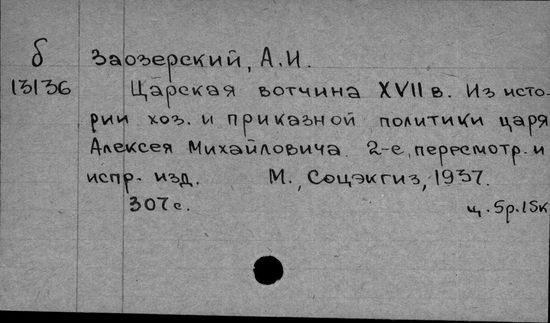 б Заозерский, А.И.
13136 Царская вотчина XVII в. Из исто-
рии хоз. и приказной политики царя
Алексея Михайловича. 2-е, пересмотр. и
испр. изд. М., Соцэкгиз, 1937.
307 с. ц. 5р.15к